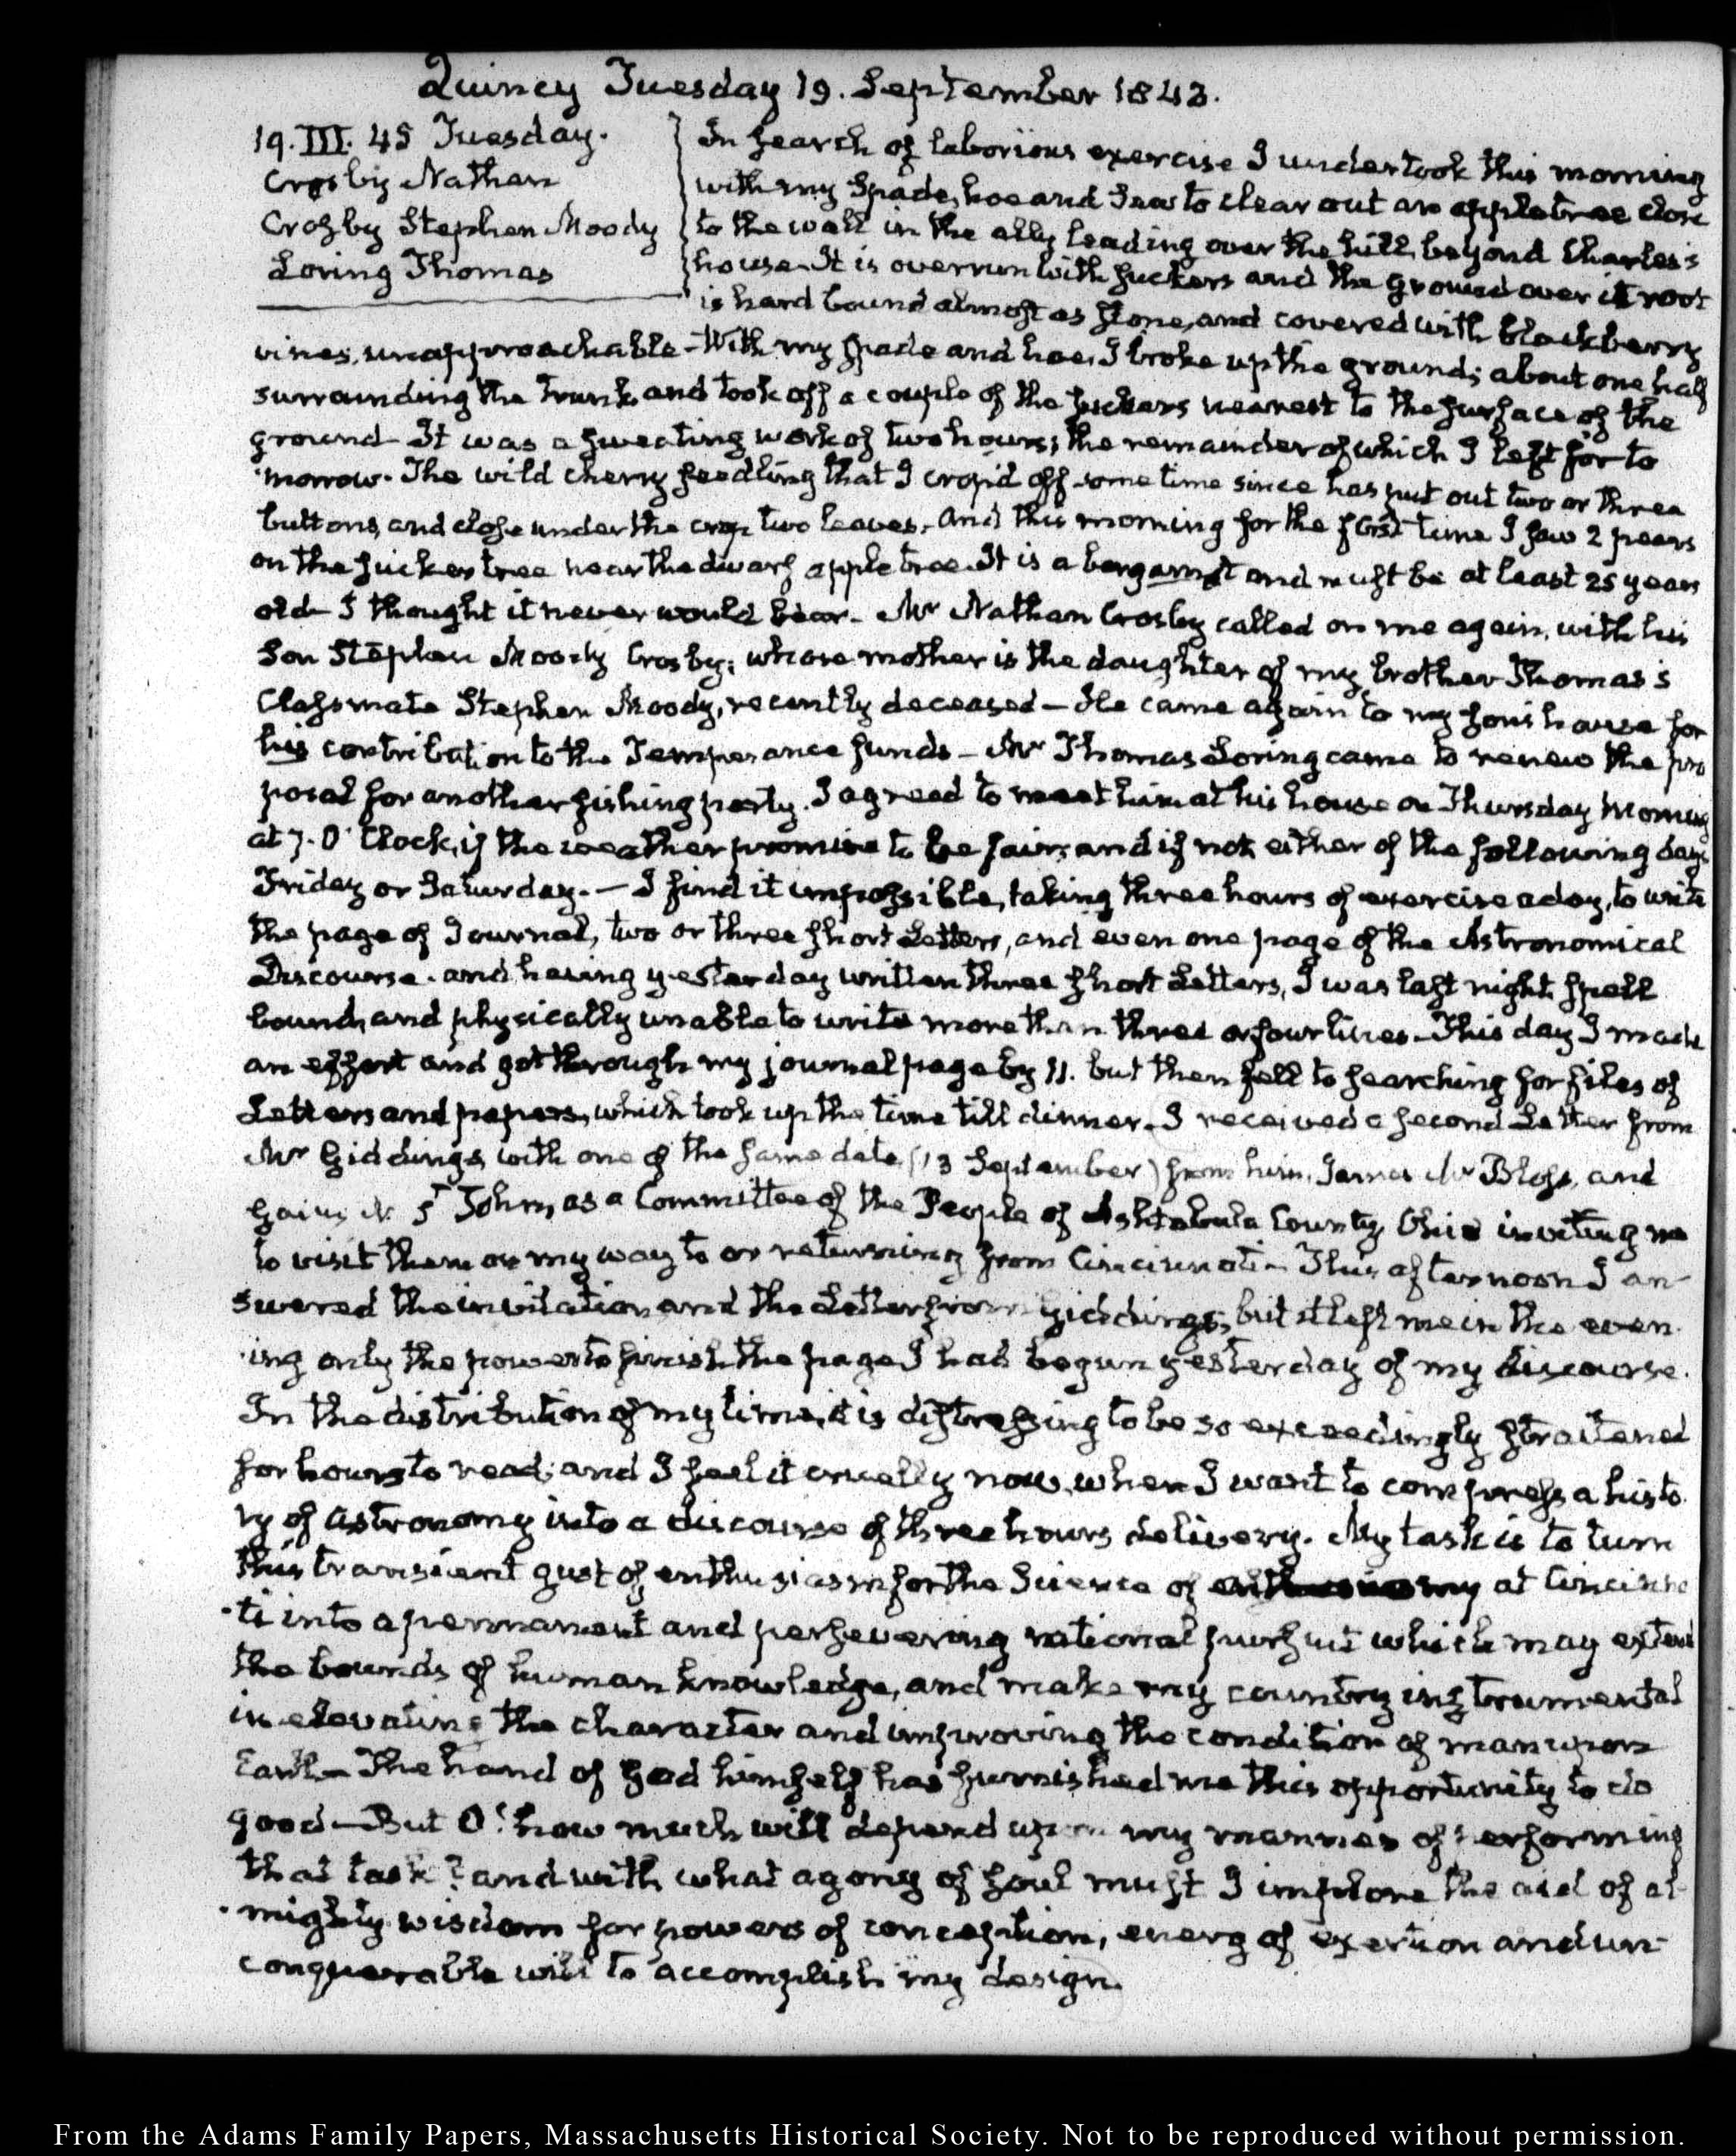 Quincy Tuesday 19. September 1843.
19. III. 45 Tuesday.
Crosby Nathan
Crosby Stephen Moody
Loring Thomas
In search of laborious exercise I undertook this morning
with my Spade, hoe and Saw to clear out an apple tree close
to the wall in the ally leading over the hill, beyond Charles's
house. It is overrun with suckers and the ground over it root
is hard bound almost as stone, and covered with blackberry
vines, unapproachable - With my spade and hoe, I broke up the ground; about one half
surrounding the trunk, and took off a couple of the suckers nearest to the surface of the
ground - It was a sweating work of two hours; the remainder of which I left for to
morrow. The wild cherry seedling that I crop'd off some time since has put out two or three
buttons, and close under the crop two leaves, and this morning for the first time I saw 2 pears
on the sucker tree near the dwarf apple tree. It is a bergamot and must be at least 25 years
old - I thought it never would bear - Mr Nathan Crosby called on me again, with his
Son Stephen Moody Crosby; whose mother is the daughter of my brother Thomas's
Classmate Stephen Moody, recently deceased - He came again to my son's house for
his contribution to the Temperance funds - Mr Thomas Loring came to renew the pro
posal for another fishing party. I agreed to meet him at his house on Thursday Morning
at 7. O'Clock, if the weather promise to be fair; and if not either of the following days
Friday or Saturday. - I find it impossible, taking three hours of exercise a day, to write
the page of Journal, two or three short Letters, and even one page of the Astronomical
Discourse. and having yesterday written three short Letters, I was last night spell
bound, and physically unable to write more than three or four lines - This day I made
an effort and got through my journal page by 11. but then fell to searching for files of
Letters and papers, which took up the time till dinner. I received a second Letter from
Mr Giddings, with one of the same date (13 September) from him, James Bloss, and
Gaius St John, as a Committee of the People of Ashtabula County, Ohio inviting me
to visit them on my way to or returning from Cincinnati - This afternoon I an-
swered the invitation and the Letter from Giddings; but it left me in the even
ing only the power to finish the page I had begun yesterday of my discourse.
In the distribution of my time, it is distressing to be so exceedingly straitened
for hours to read; and I feel it cruelly now, when I want to compress a histo
ry of astronomy into a discourse of three hours delivery. My task is to turn
this transient gust of enthusiasm for the Science of my at Cincinna
ti into a permanent and persevering national pursuit which may extend
the bounds of human knowledge, and make my country instrumental
in elevating the character and improving the condition of man upon
Earth - The hand of God himself has furnished me this opportunity to do
good - But O! how much will depend upon my manner of performing
that task? and with what agony of soul must I implore the aid of al
mighty wisdom for powers of conception, energ of exertion and un-
conquerable will to accomplish my design.
From the Adams Family Papers, Massachusetts Historical Society. Not to be reproduced without permission.